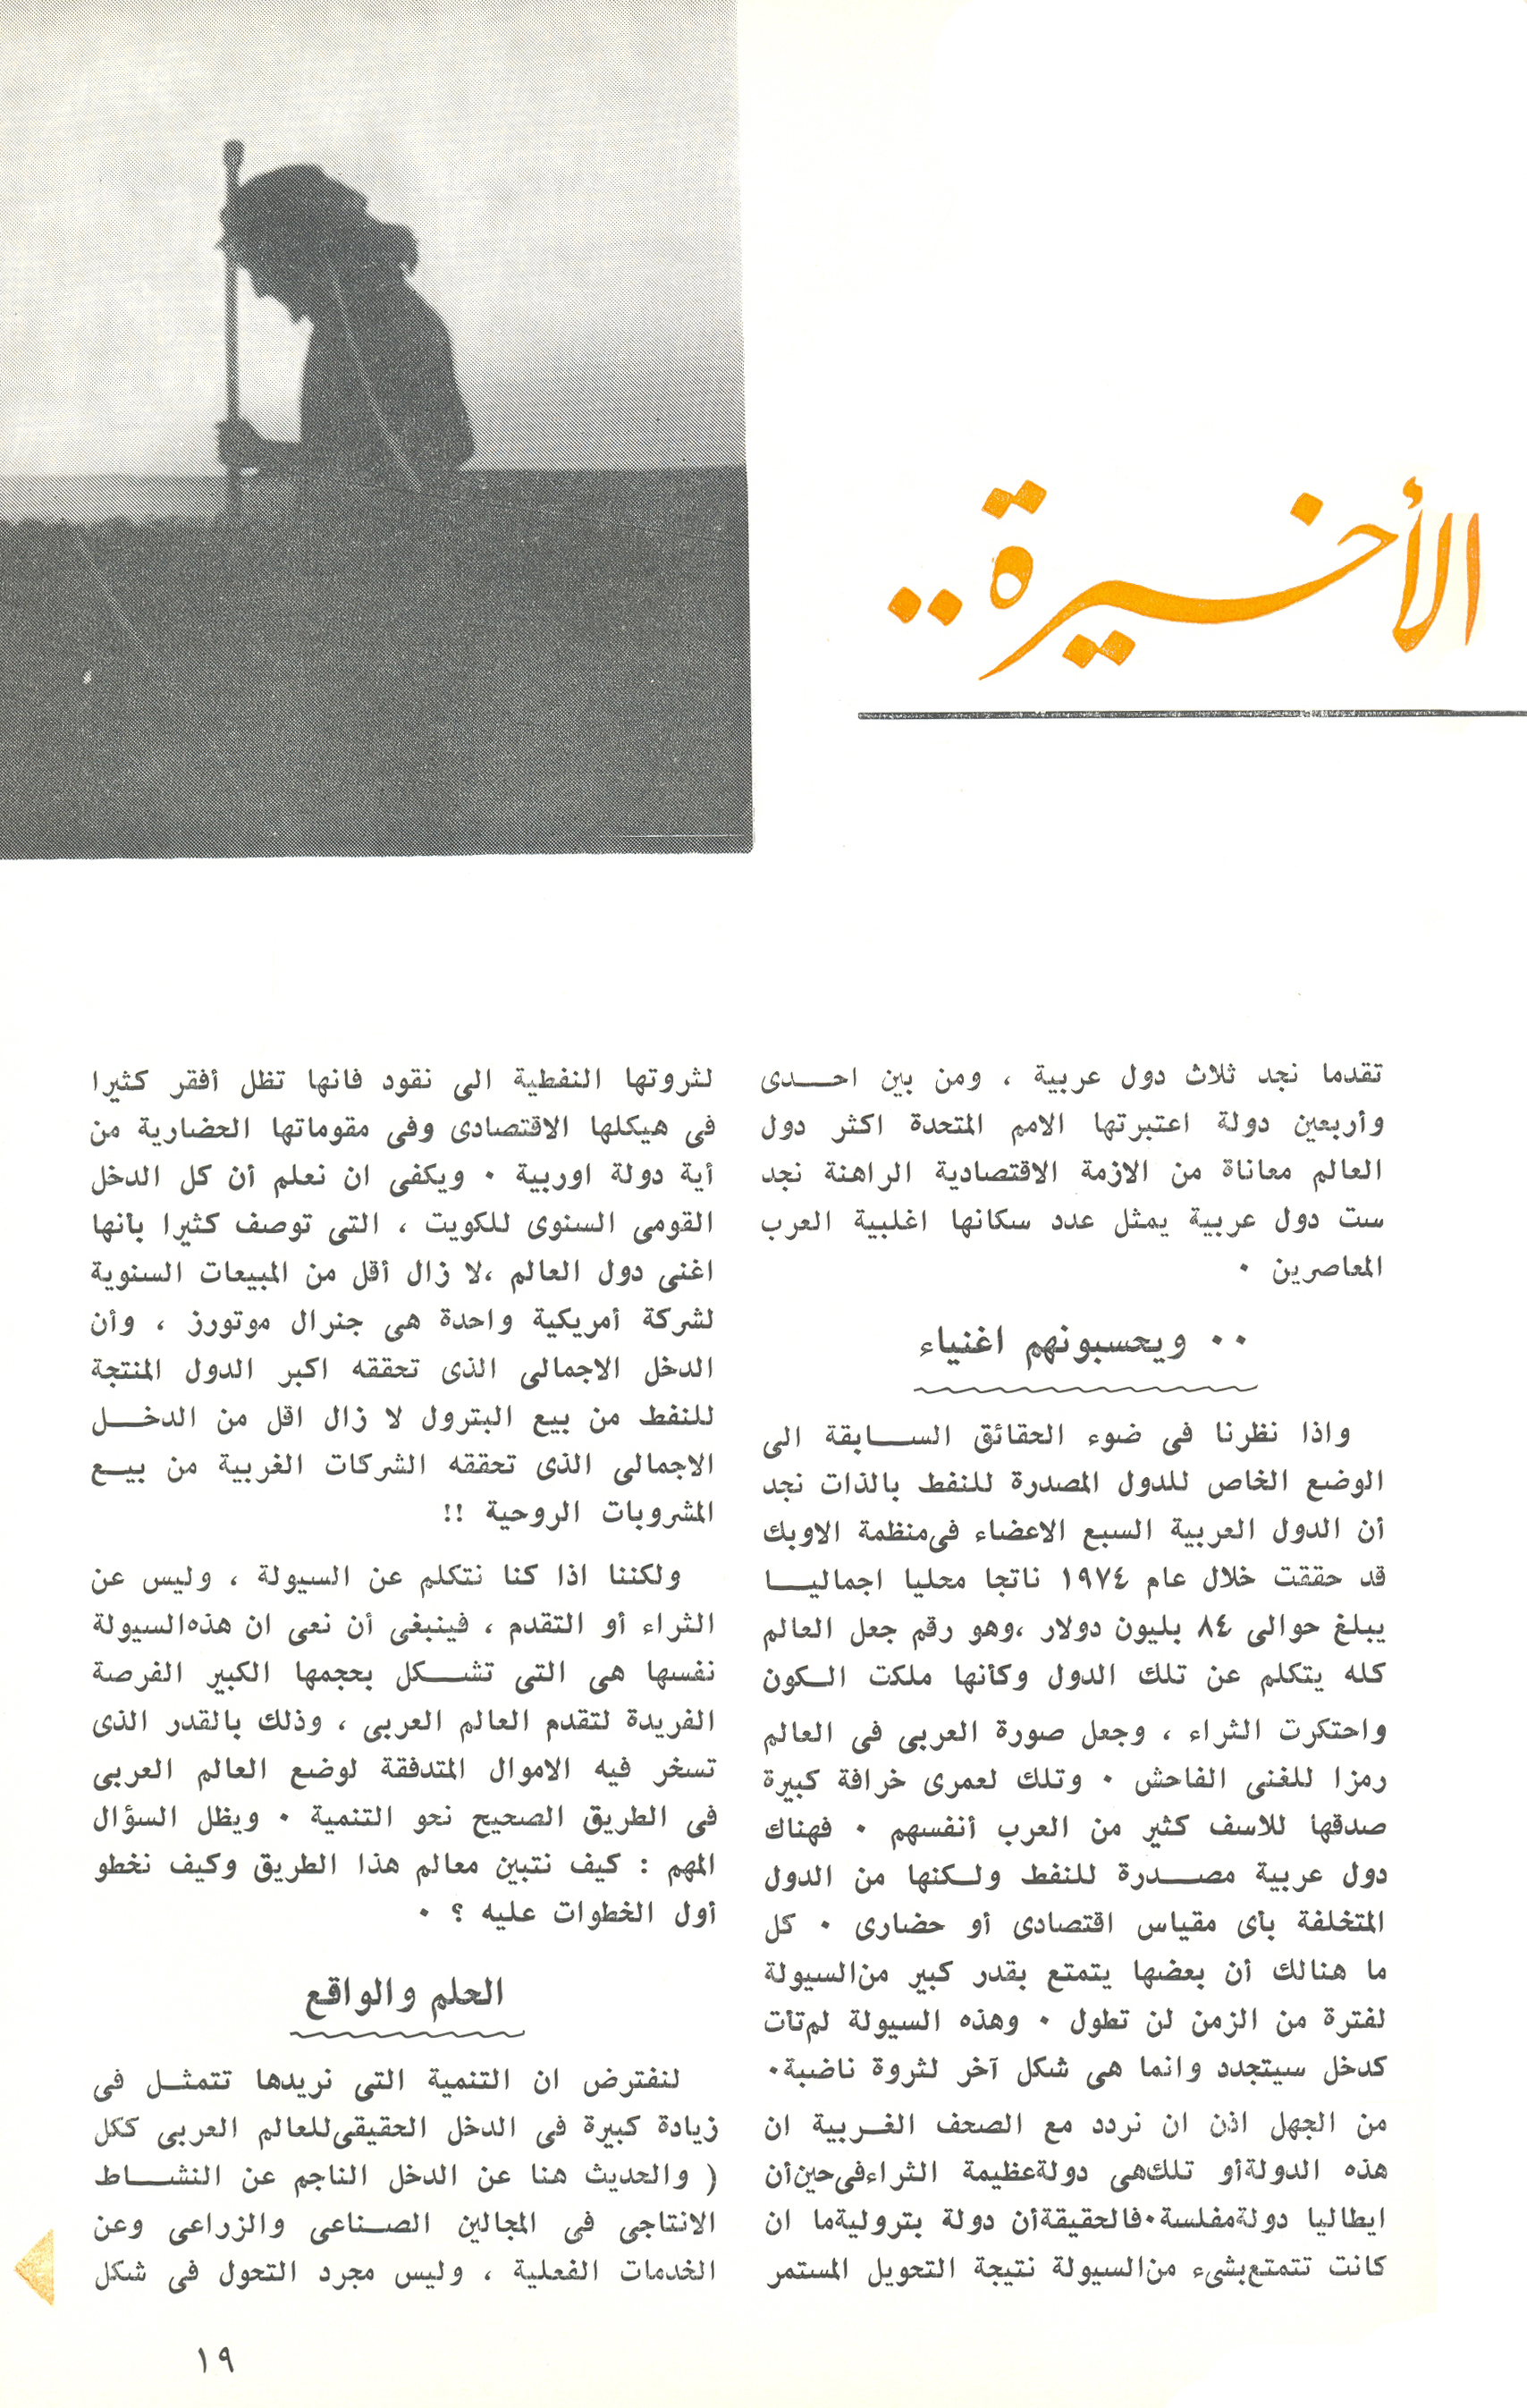 الأخيرة..
تقدما نجد ثلاث دول عربية ، ومن بين احــدى
وأربعين دولة اعتبرتها الامم المتحدة اكثر دول
العالم معاناة من الازمة الاقتصادية الراهنة نجد
ست دول عربية يمثل عدد سكانها اغلبية العرب
المعاصرين ٠
٠٠ ويحسبونهم اغنياء
واذا نظرنا فى ضوء الحقائق الســابقة الى
الوضع الخاص للدول المصدرة للنفط بالذات نجد
أن الدول العربية السبع الاعضاء فى منظمة الاوبك
قد حققت خلال عام ١٩٧٤ ناتجا محليا اجماليــا
يبلغ حوالى ٨٤ بليون دولار ،وهو رقم جعل العالم
كله يتكلم عن تلك الدول وكأنها ملكت الـكون
واحتكرت الثراء ، وجعل صورة العربى فى العالم
رمزا للغنى الفاحش ٠ وتلك لعمرى خرافة كبيرة
صدقها للاسف كثير من العرب أنفسهم ٠ فهناك
دول عربية مصــدرة للنفط ولـكنها من الدول
المتخلفة بأى مقياس اقتصادى أو حضارى ٠ كل
ما هنالك أن بعضها يتمتع بقدر كبير من السيولة
لفترة من الزمن لن تطول ٠ وهذه السيولة لم تأت
كدخل سيتجدد وانما هى شكل آخر لثروة ناضبة٠
من الجهل اذن ان نردد مع الصحف الغـربية ان
هذه الدولة أو تلك هى دولة عظيمة الثراء فى حين أن
ايطاليا دولة مفلسة٠فالحقيقة أن دولة بترولية ما ان
كانت تتمتع بشىء من السيولة نتيجة التحويل المستمر
لثروتها النفطية الى نقود فانها تظل أفقر كثيرا
فى هيكلها الاقتصادى وفى مقوماتها الحضارية من
أية دولة اوربية ٠ ويكفى ان نعلم أن كل الدخل
القومى السنوى للكويت ، التى توصف كثيرا بأنها
اغنى دول العالم ،لا زال أقل من المبيعات السنوية
لشركة أمريكية واحدة هى جنرال موتورز ، وأن
الدخل الاجمالى الذى تحققه اكبر الدول المنتجة
للنفط من بيع البترول لا زال اقل من الدخــل
الاجمالى الذى تحققه الشركات الغربية من بيــع
المشروبات الروحية !!
ولكننا اذا كنا نتكلم عن السيولة ، وليس عن
الثراء أو التقدم ، فينبغى أن نعى ان هذه السيولة
نفسها هى التى تشــكل بحجمها الكبير الفرصة
الفريدة لتقدم العالم العربى ، وذلك بالقدر الذى
تسخر فيه الاموال المتدفقة لوضع العالم العربى
فى الطريق الصحيح نحو التنمية ٠ ويظل السؤال
المهم : كيف نتبين معالم هذا الطريق وكيف نخطو
أول الخطوات عليه ؟ ٠
الحلم والواقع
لنفترض ان التنمية التى نريدها تتمثــل فى
زيادة كبيرة فى الدخل الحقيقى للعالم العربى ككل
( والحديث هنا عن الدخل الناجم عن النشــاط
الانتاجى فى المجالين الصـناعى والزراعى وعن
الخدمات الفعلية ، وليس مجرد التحول فى شكل
١٩